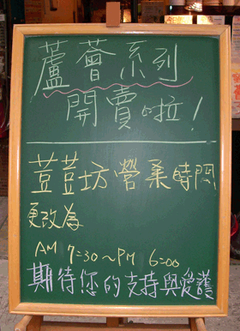 蘆薈系列
開賣啦!
荳荳坊營業時間
更改為
AM 7:30~PM 6:00
期待您的支持與愛護